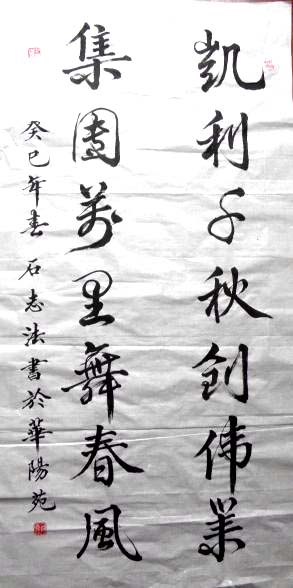 凯利千秋创伟業
集團萬里舞春風
癸巳年春 石志法書於華陽苑